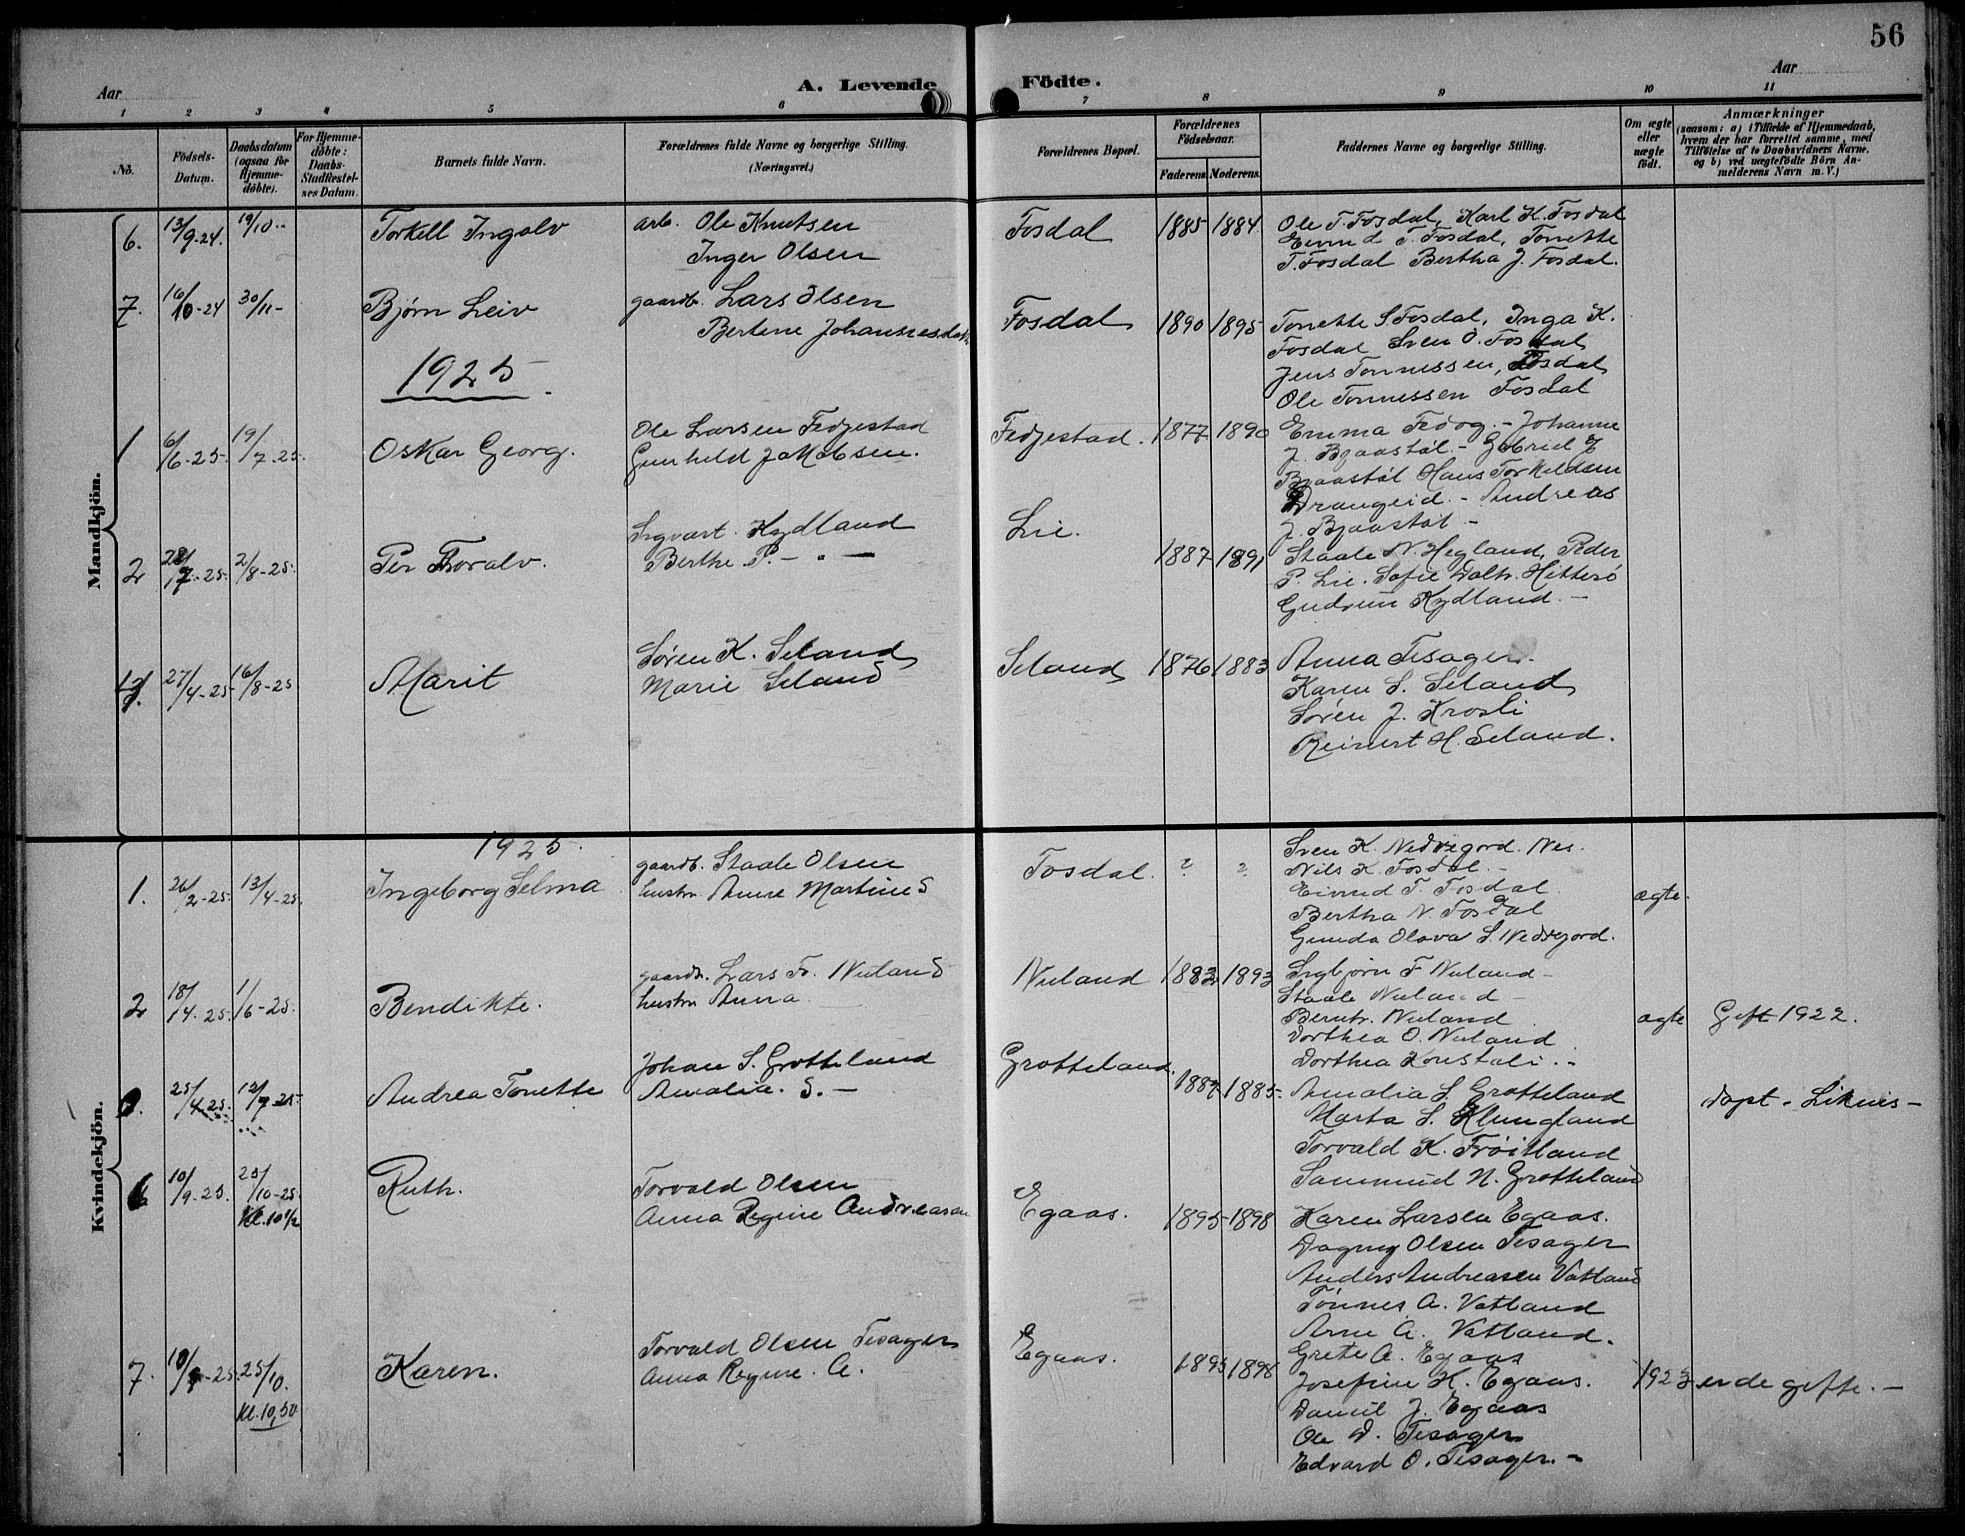 56
Aar
A. Levende Fødte.
Aar
1 2 3 4 5 6 7 8 9 10 11
No.
Fødsels-Datum.
Daabsdatum (ogsaa for Hjemme-døbte).
For Hjemme-døbte: Daabs-Stadfæstel-ses Datum.
Barnets fulde Navn.
Forældrenes fulde Navne og borgerlige Stilling. (Næringsvei.)
Forældrenes Bopæl.
Forældrenes Fødselsaar.
Faderens. Moderens.
Faddernes Navne og borgerlige Stilling.
Om ægte eller uægte født.
Anmærkninger
(saasom: a) i Tilfælde af Hjemmedaab, hvem der har forrettet samme, med Tilføielse af to Daabsvidners Navne, og b) ved uægtefødte Børn An-melderens Navn m. V.)
Mandkjön.
6. 13/9-24. 19/10-- Torkell Ingolv
arb. Ole Knutsen
Inger Olsen
Fosdal 1885 1884
Ole T. Fosdal, Karl K. Fosdal
Eivind T. Fosdal, Tonette
T. Fosdal Bertha J. Fosdal.
7. 16/10-24 30/11- Bjørn Leiv
gaardb. Lars Olsen
Bertine Johannesdatr
Fosdal 1890 1895
Tonette S. Fosdal, Inga K.
Fosdal Sven O. Fosdal
Jens Tonnessen, Fosdal
Ole Tonnessen Fosdal
1925.
1 6/6-25. 19/7-25. Oskar Georg.
Ole Larsen Fedjestad
Gunhild Jakobsen.
Fedjestad. 1877 1890
Emma Fedog. - Johanne
J. Bjaastøl - Gabriel J
Bjaastøl Hans Torkildsen
Drangeid. - Andreas
J. Bjaastøl -
2 28/7-25. 2/8-25. Per Toralv.
Ingvart Kydland
Berthe P. - " -
Lie. 1887 1891
Staale N. Hegland, Peder
P. Lie. Sofie Dalh. Hitterø
Gudrun Kydland. -
3. 27/4-25 16/8-25 Marit
Søren K. Seland
Marie Seland
Seland 1876 1883
Anna Tesager.
Karen S. Seland
Søren J. Krosli
Reinert H. Seland.
Kvindekjön.
1925.
1. 26/2-25. 13/4-25. Ingeborg Selma
gaardb. Staale Olsen
hustru Anne Martine S
Fosdal. ? ?
Sven K. Nedregord. Nes.
Nils K. Fosdal. -
Eivind T. Fosdal.
Bertha N. Fosdal
Gunda Olava S. Nedregord.
ægte.
2 18/4-25. 1/6-25. Bendikte.
gaardb. Lars Fr. Nuland
hustru Anna
Nuland 1882 1893
Ingbjørn F Nuland -
Staale Nuland -
Berntr. Nuland
Dorthea O. Nuland
Dorthea Konstali. -
ægte Gift 1922.
25/4-25. 12/7-25. Andrea Tonette
Johan S. Grotteland
Amalia. S. -
Grotteland. 1885.
Amalia S. Grotteland
Marta S. Klungland
Torvald K. Frøitland
Sammund N. Grotteland
døpt. Liknes -
10/9-25. 25/10-25. Kl. 10 1/2 Ruth.
Torvald Olsen
Anna Regine Andreasen
Egaas. 1895 1898
Karen Larsen Egaas.
Dagny Olsen Tesager
Anders Andreasen Vatland
Tønnes A. Vatland
Arne A. Vatland.
7. 10/9-25 25/10. Kl. 10,50 Karen.
Torvald Olsen Tesager
Anna Regine. A.
Egaas. 1895 1898
Grete A. Egaas
Josefine K. Egaas.
Daniel J. Egaas
Ole D. Tesager
Edvard O. Tesager. -
1923 er de gifte. -